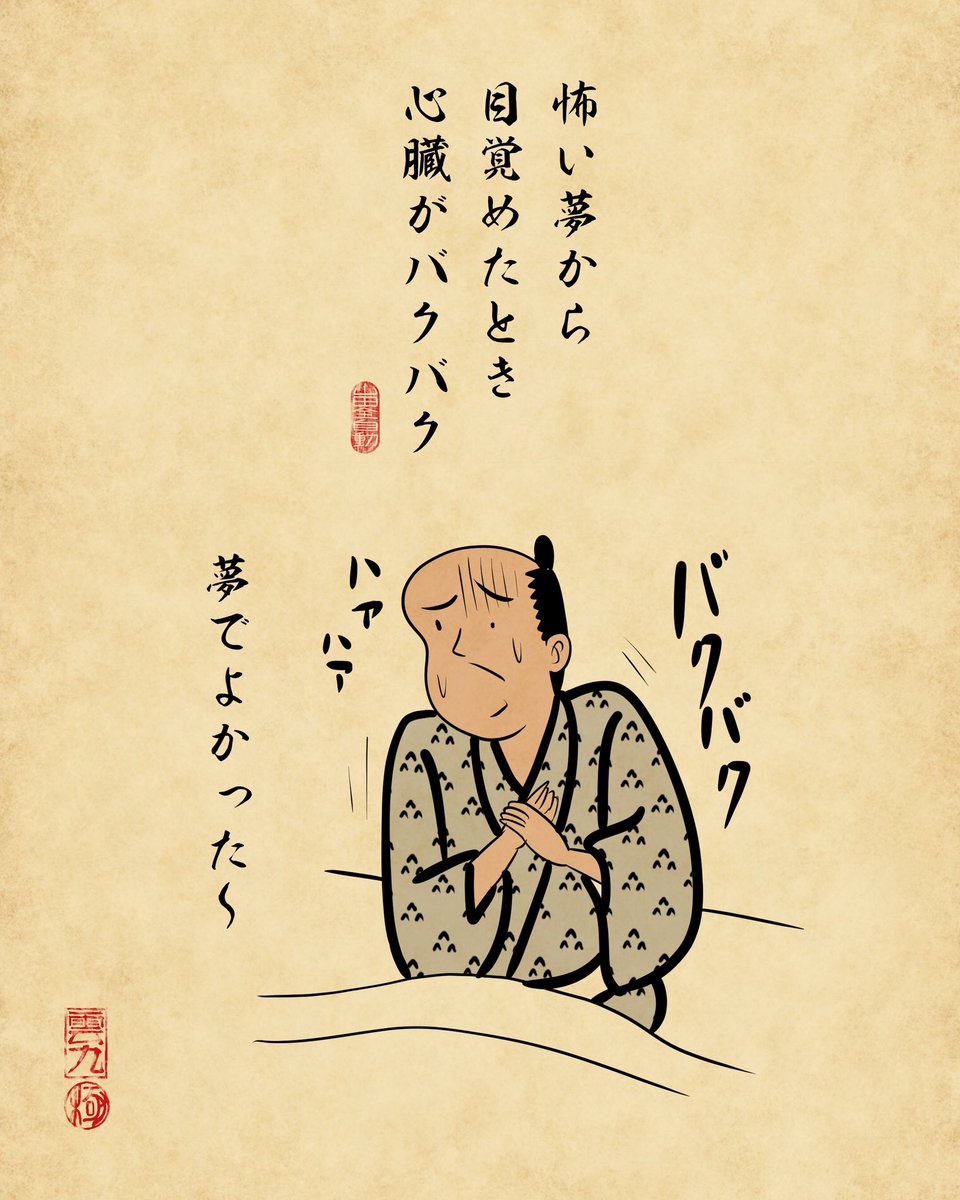 怖い夢から
目覚めたとき
心臓がバクバク
バクバク
ハァハァ
夢でよかった〜